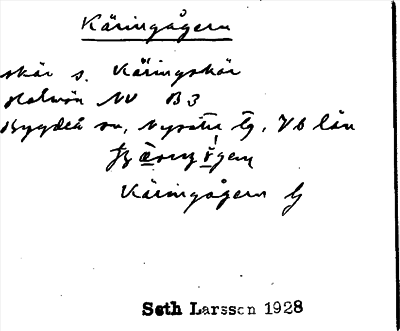 Käringågern
skär s. Käringskär
Holmön NV B3
Bygdeå sn, Nysätra tg. Vb län
Käringågern
Seth Larsson 1928